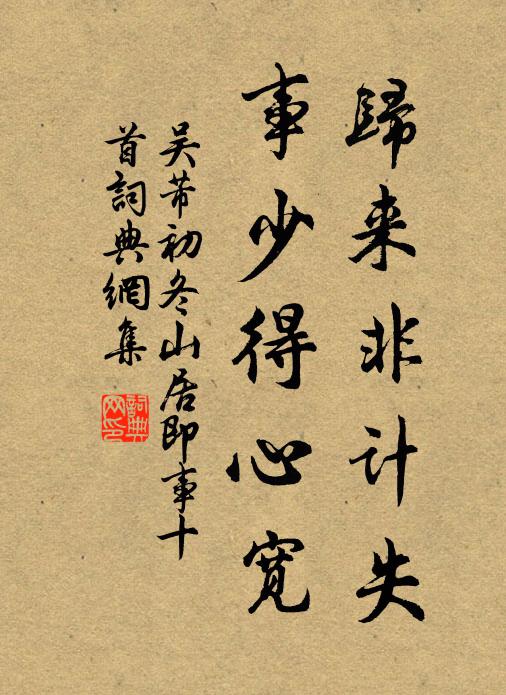 歸来非计失
事少得心寬
吴芾初冬山居即事十
首詞典網集
詞典
网印